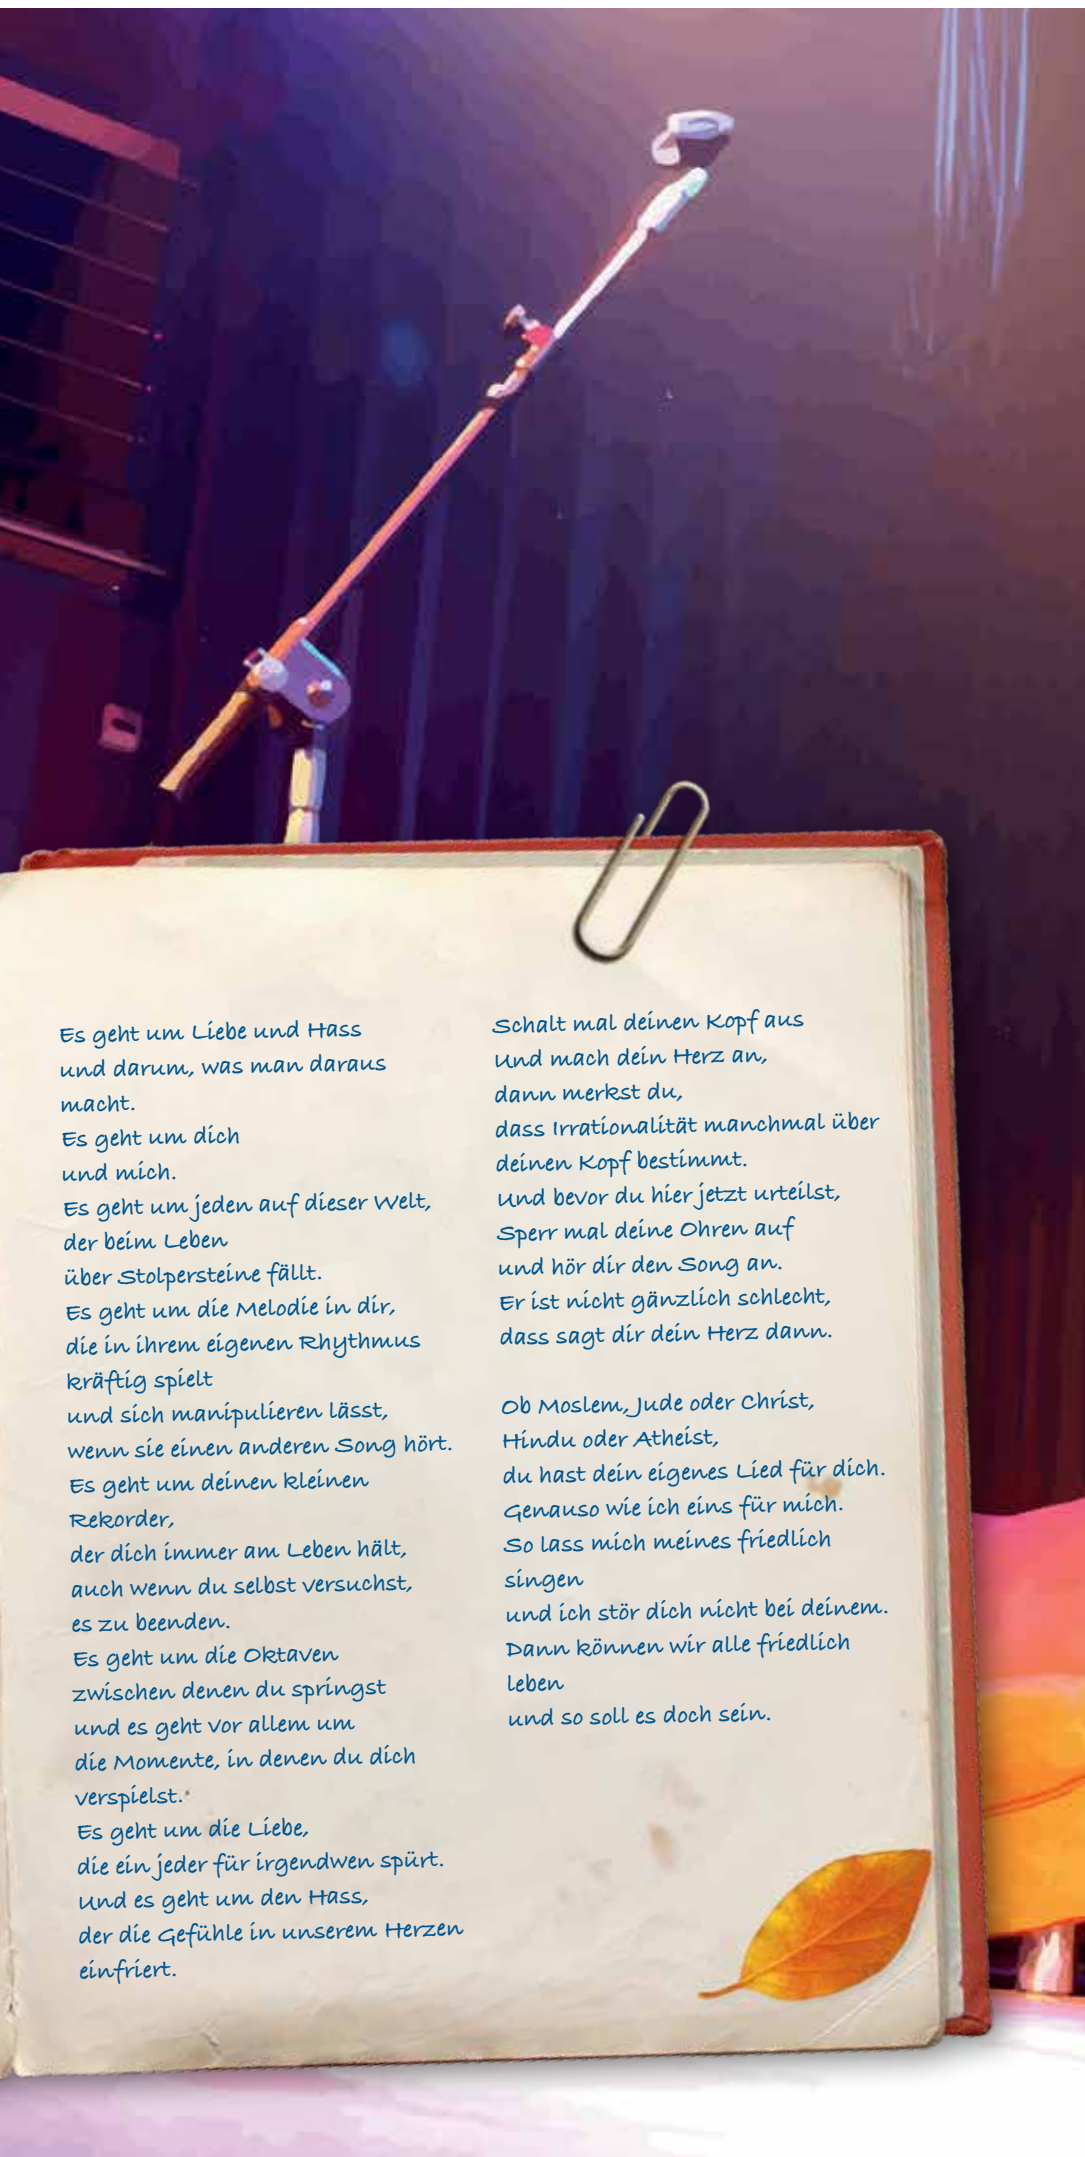 Es geht um Liebe und Hass
und darum, was man daraus
macht.
Es geht um dich
und mich.
Es geht um jeden auf dieser Welt,
der beim Leben
über Stolpersteine fällt.
Es geht um die Melodie in dir,
die in ihrem eigenen Rhythmus
kräftig spielt
und sich manipulieren lässt,
wenn sie einen anderen Song hört.
Es geht um deinen kleinen
Rekorder,
der dich immer am Leben hält,
auch wenn du selbst versuchst,
es zu beenden.
Es geht um die Oktaven
zwischen denen du springst
und es geht vor allem um
die Momente, in denen du dich
verspielst.
Es geht um die Liebe,
die ein jeder für irgendwen spürt.
Und es geht um den Hass,
der die Gefühle in unserem Herzen
einfriert.
Schalt mal deinen Kopf aus
Und mach dein Herz an,
dann merkst du,
dass Irrationalität manchmal über
deinen Kopf bestimmt.
Und bevor du hier jetzt urteilst,
Sperr mal deine Ohren auf
und hör dir den Song an.
Er ist nicht gänzlich schlecht,
dass sagt dir dein Herz dann.
Ob Moslem, Jude oder Christ,
Hindu oder Atheist,
du hast dein eigenes Lied für dich.
Genauso wie ich eins für mich.
So lass mich meines friedlich
singen
und ich stör dich nicht bei deinem.
Dann können wir alle friedlich
leben
und so soll es doch sein.